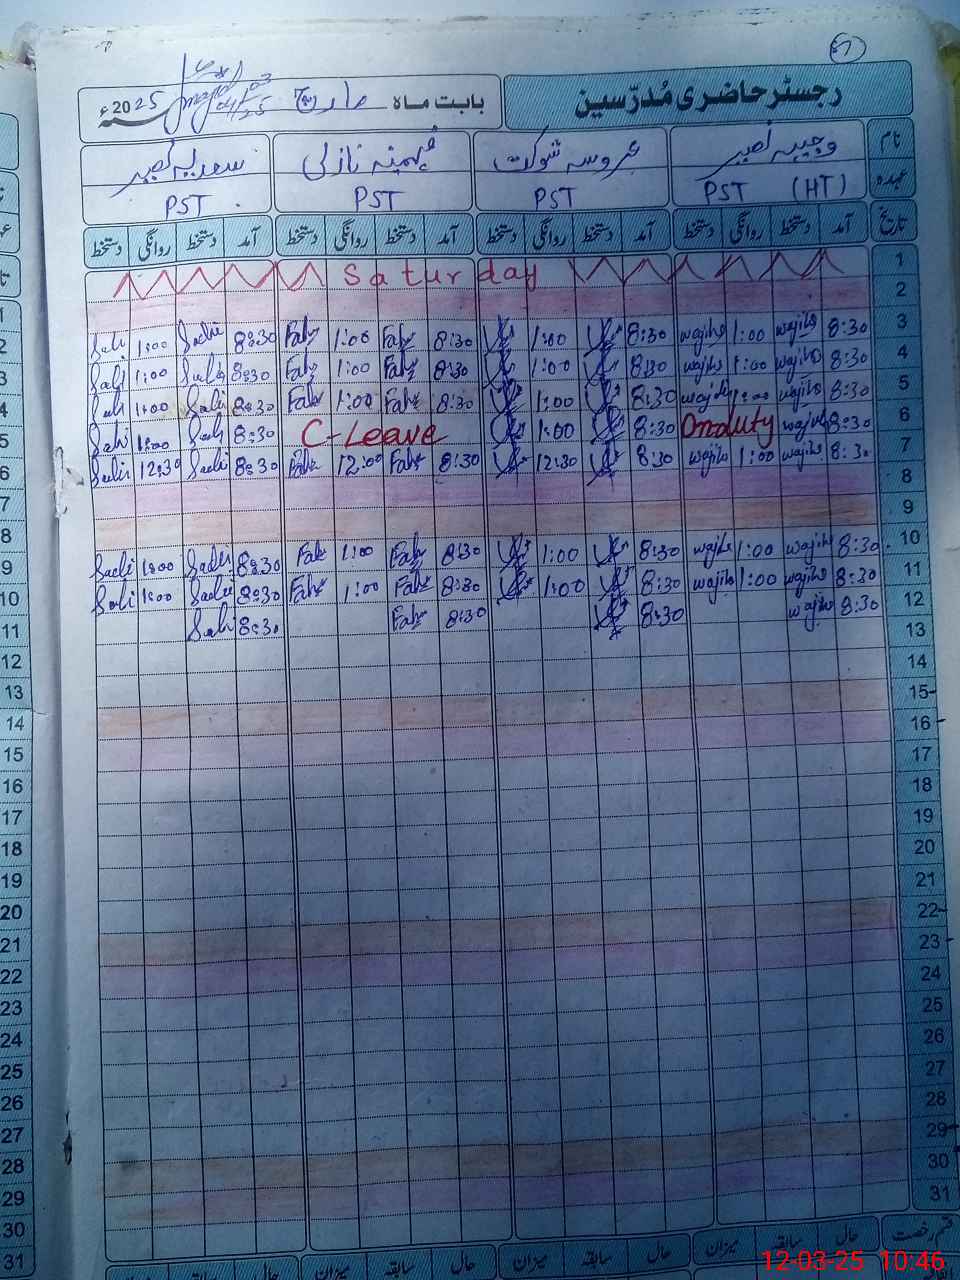 رجسٹر حاضری مُدرّسین
بابت ماہ مارچ 2025ء
نام وجیہہ نصیر عروسہ شوکت فہمینہ نازلی سعدیہ نصیر
عہدہ PST (HT) PST PST PST
تاریخ آمد دستخط روانگی دستخط آمد دستخط روانگی دستخط آمد دستخط روانگی دستخط آمد دستخط روانگی دستخط
1 Saturday
2
3 8:30 wajiha 1:00 wajiha 8:30 1:00 8:30 Fah 1:00 Fah 8:30 Sadi 1:00 Sadi
4 8:30 wajiha 1:00 wajiha 8:30 1:00 8:30 Fah 1:00 Fah 8:30 Sadi 1:00 Sadi
5 8:30 wajiha 1:00 wajiha 8:30 1:00 8:30 Fah 1:00 Fah 8:30 Sadi 1:00 Sadi
6 8:30 wajiha Onduty 8:30 1:00 C-Leave 8:30 Sadi 1:00 Sadi
7 8:30 wajiha 1:00 wajiha 8:30 12:30 8:30 Fah 12:00 Fah 8:30 Sadi 12:30 Sadi
8
9
10 8:30 wajiha 1:00 wajiha 8:30 1:00 8:30 Fah 1:00 Fah 8:30 Sadi 1:00 Sadi
11 8:30 wajiha 1:00 wajiha 8:30 1:00 8:30 Fah 1:00 Fah 8:30 Sadi 1:00 Sadi
12 8:30 wajiha 8:30 8:30 Fah 8:30 Sadi
13
14
15
16
17
18
19
20
21
22
23
24
25
26
27
28
29
30
31
قسم رخصت حال سابقہ میزان حال سابقہ میزان حال سابقہ میزان حال سابقہ میزان
12-03-25 10:46